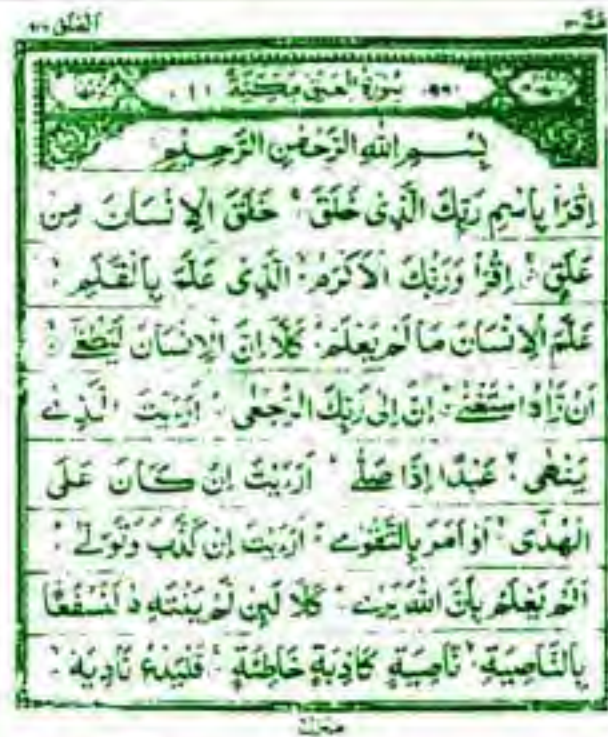 العلق
سورة العلق مكية
بسم الله الرحمن الرحيم
اِقْرَاْ بِاسْمِ رَبِّكَ الَّذِىْ خَلَقَ خَلَقَ الْاِنْسَانَ مِنْ
عَلَقٍ اِقْرَاْ وَرَبُّكَ الْاَكْرَمُ الَّذِىْ عَلَّمَ بِالْقَلَمِ
عَلَّمَ الْاِنْسَانَ مَا لَمْ يَعْلَمْ كَلَّا اِنَّ الْاِنْسَانَ لَيَطْغٰے
اَنْ رَّاٰهُ اسْتَغْنٰے اِنَّ اِلٰى رَبِّكَ الرُّجْعٰى اَرَءَيْتَ الَّذِے
يَنْهٰى عَبْدًا اِذَا صَلّٰے اَرَءَيْتَ اِنْ كَانَ عَلَى
الْهُدٰى اَوْ اَمَرَ بِالتَّقْوٰے اَرَءَيْتَ اِنْ كَذَّبَ وَتَوَلّٰے
اَلَمْ يَعْلَمْ بِاَنَّ اللّٰهَ يَرٰے كَلَّا لَئِنْ لَّمْ يَنْتَهِ لَنَسْفَعًا
بِالنَّاصِيَةِ نَاصِيَةٍ كَاذِبَةٍ خَاطِئَةٍ فَلْيَدْعُ نَادِيَهٗ